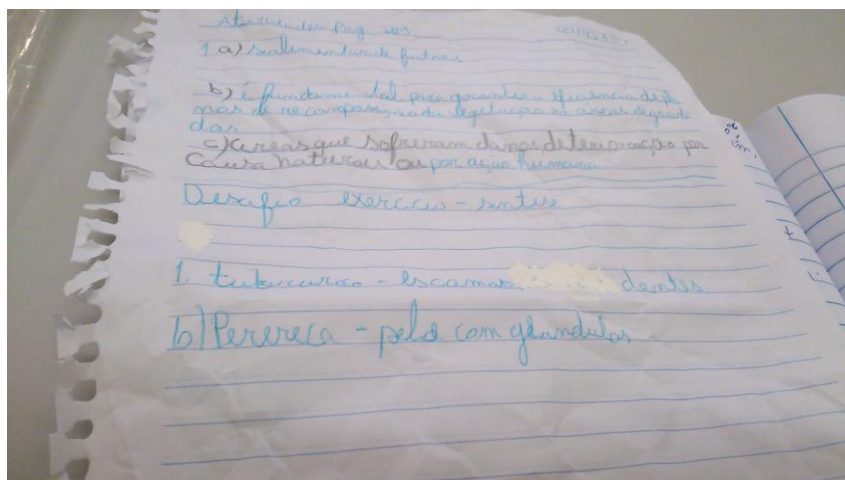 Atividades Pag
1 a) se alimentar de frutos
b) é fundamental para garantir a eficiencia de pla
nos de recomposição da vegetação em áreas degrada
das
c) areas que sofreram danos deterioração por
Causa naturais ou por ação humana
Desafio exerccio - sintese
1. tubarão - escamas dentes
b) Perereca - pele com glandulas